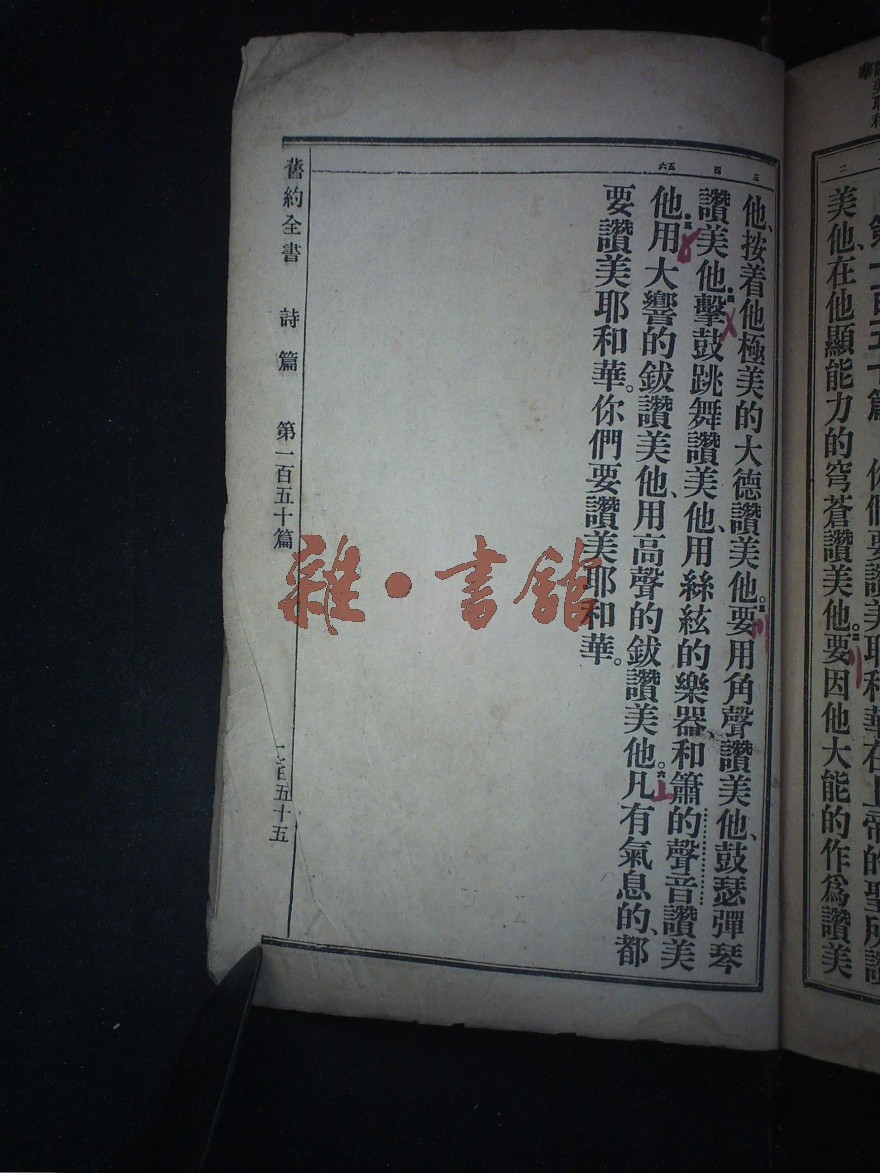 第一百五十篇 你們要讚美耶和華在上帝的聖所讚
美他、在他顯能力的穹蒼讚美他。二要因他大能的作爲讚美
二
三
四
五六
他、按着他極美的大德讚美他。三要用角聲讚美他、鼓瑟彈琴
讚美他四擊鼓跳舞讚美他、用絲絃的樂器、和簫的聲音讚美
他五用大響的鈸讚美他、用高聲的鈸讚美他。六凡有氣息的、都
要讚美耶和華。你們要讚美耶和華。
舊約全書 詩篇 第一百五十篇 百五十五
雜·書館